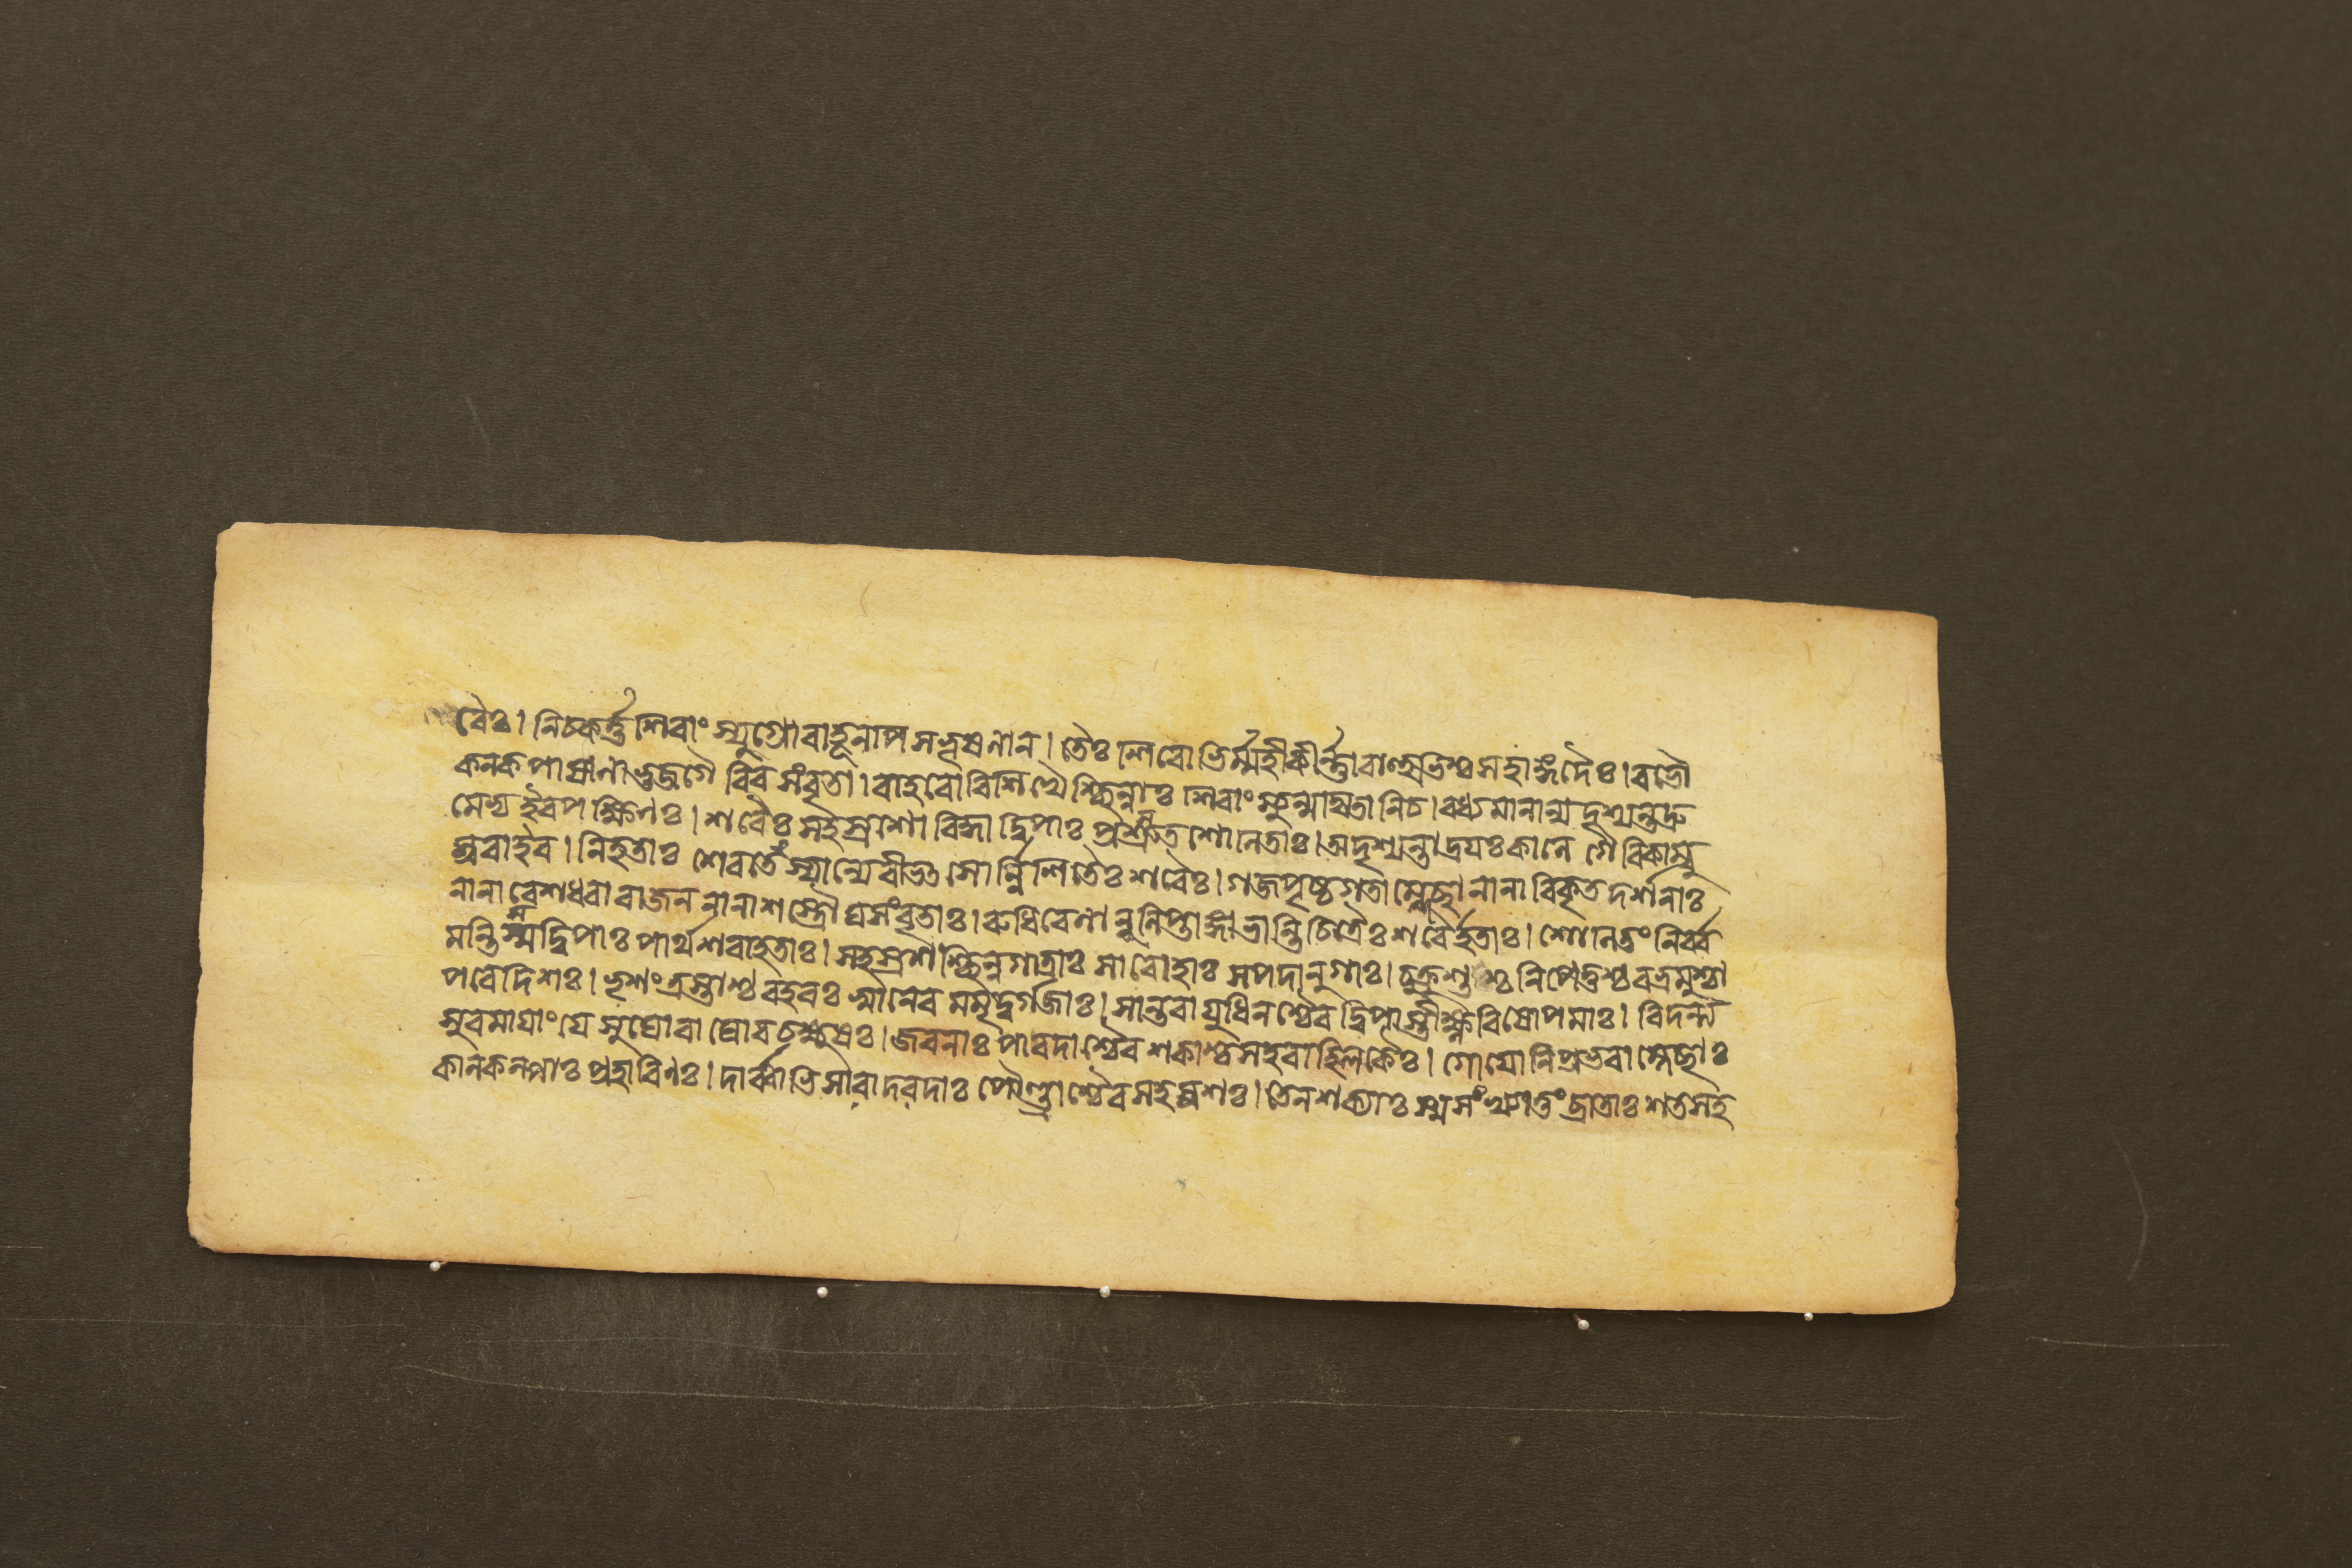 রৈঃ। নিচকর্ত্ত শিরাংস্যুগ্রো বাহূনপি সভূষণান্। তৈঃ শিরোভির্ম্মহী কীর্ণ্ণা বাহুভিশ্চ সহাঙ্গদৈঃ। বভৌ
কনকপাষাণা ভুজগৈরিব সংবৃতা। বাহবো বিশিখৈশ্ছিন্নাঃ শিরাংস্যুন্মথিতানি চ। বধ্যমানান্যদৃশ্যন্ত দ্রু
মেভ্য ইব পক্ষিণঃ। শরৈঃ সহস্রশো বিদ্ধা দ্বিপাঃ প্রস্রুতশোণিতাঃ। অদৃশ্যন্তাদ্রয়ঃ কালে গৈরিকাম্বু
স্রবা ইব। নিহতাঃ শেরতে স্মান্যে বীভৎসোর্ন্নিশিতৈঃ শরৈঃ। গজপৃষ্ঠগতা ম্লেচ্ছা নানাবিকৃতদর্শনাঃ
নানাবেশধরা রাজন্ নানাশস্ত্রৌঘসংবৃতাঃ। রুধিরেণানুলিপ্তাঙ্গা ভান্তি চিত্রৈঃ শরৈর্হতাঃ। শোণিতং নির্ব্ব
মন্তি স্ম দ্বিপাঃ পার্থশরাহতাঃ। সহস্রশশ্ছিন্নগাত্রাঃ সারোহাঃ সপদানুগাঃ। চুক্রুশুশ্চ নিপেতুশ্চ বভ্রমুশ্চা
পরে দিশঃ। ভৃশং ত্রস্তাশ্চ বহবঃ স্বানেব মমৃদুর্গজাঃ। সান্তরায়ুধিনশ্চৈব দ্বিপাস্তীক্ষ্ণবিষোপমাঃ। বিদন্ত্য
সুরমায়াং যে সুঘোরা ঘোরচক্ষুষঃ। জবনাঃ পারদাশ্চৈব শকাশ্চ সহ বাহ্লিকৈঃ। গোযোনিপ্রভবা ম্লেচ্ছাঃ
কালকল্পাঃ প্রহারিণঃ। দার্ব্বাভিসারা দরদাঃ পৌণ্ড্রাশ্চৈব সহস্রশঃ। তে ন শক্যাঃ স্ম সংখ্যাতুং ব্রাতাঃ শতসহ